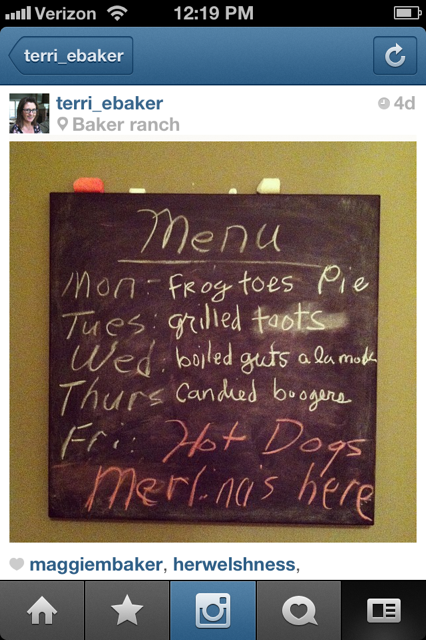 Verizon 12:19 PM
terri_ebaker
terri_ebaker 4d
Baker ranch
Menu
Mon - Frog toes Pie
Tues: grilled toots
Wed: boiled guts a la mode
Thurs Candied boogers
Fri: Hot Dogs
Merlina's here
maggiembaker, herwelshness,